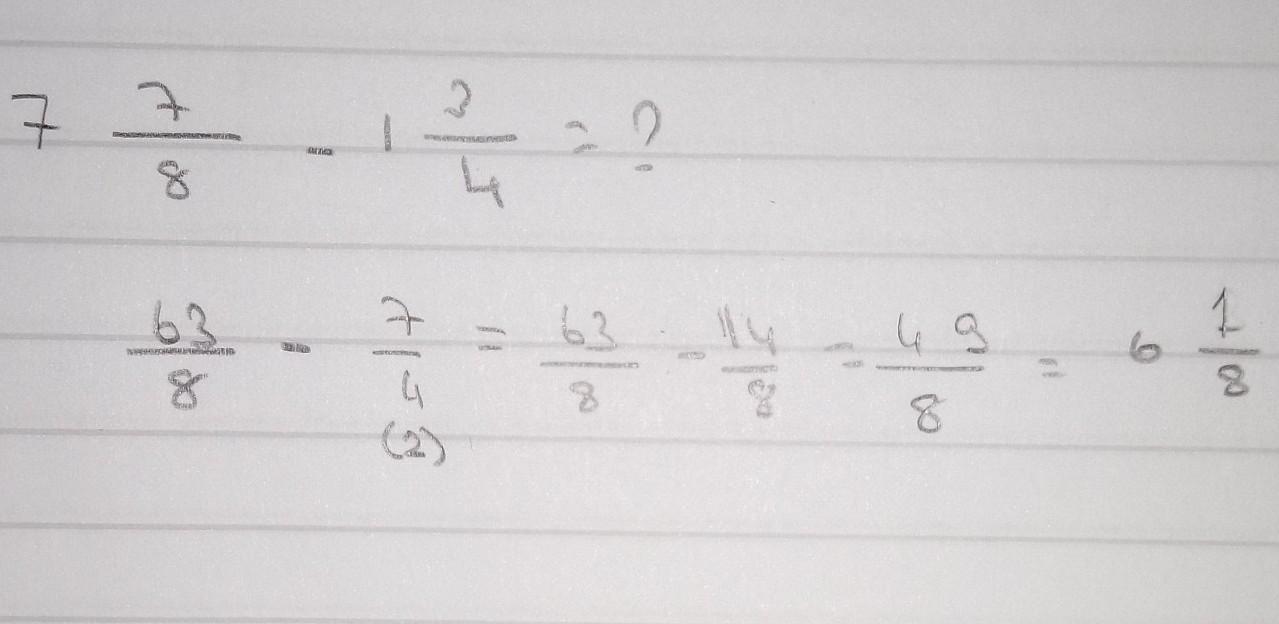 7 7/8 - 1 3/4 = ?
63/8 - 7/4 = 63/8 - 14/8 = 49/8 = 6 1/8
(2)